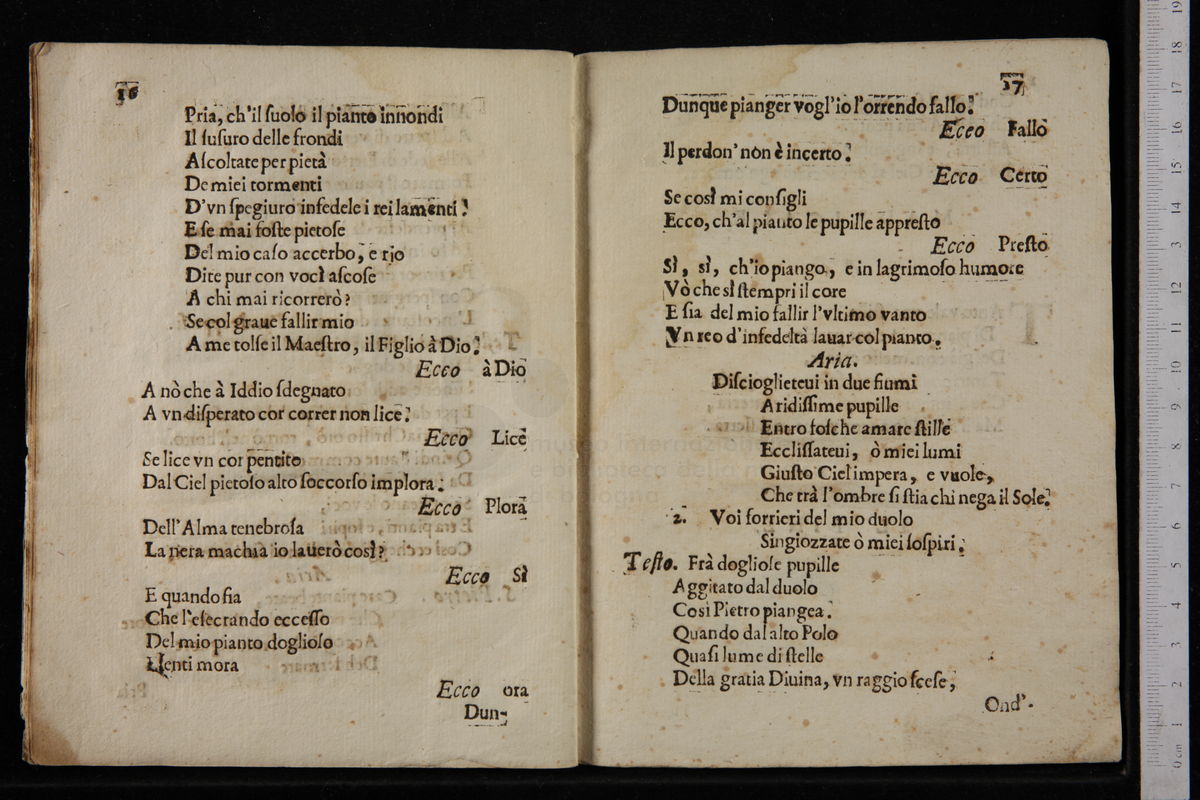 16
Pria, ch'il ſuolo il pianto innondi
Il ſuſuro delle frondi
Aſcoltate per pietà
De miei tormenti
D'vn ſpegiuro infedele i rei lamenti!
E ſe mai foſte pietoſe
Del mio caſo accerbo, e rio
Dite pur con vocì aſcoſe
A chi mai ricorrerò?
Se col graue fallir mio
A me tolſe il Maeſtro, il Figlio à Dio!
Ecco à Dio
A nò che à Iddio ſdegnato
A vn diſperato cor correr non lice!
Ecco Lice
Se lice vn cor pentito
Dal Ciel pietoſo alto ſoccorſo implora;
Ecco Plora
Dell'Alma tenebroſa
La nera machia io lauerò così?
Ecco Sì
E quando fia
Che l'eſecrando ecceſſo
Del mio pianto doglioſo
Llenti mora
Ecco ora
Dun-
17
Dunque pianger vogl'io l'orrendo fallo!
Ecco Fallò
Il perdon' nòn è incerto!
Ecco Certo
Se così mi conſigli
Ecco, ch'al pianto le pupille appreſto
Ecco Preſto
Sì, sì, ch'io piango, e in lagrimoſo humore
Vò che sì ſtempri il core
E ſia del mio fallir l'vltimo vanto
Vn reo d'infedeltà lauar col pianto.
Aria.
Diſcioglieteui in due fiumi
Aridiſſime pupille
Entro foſche amare ſtille
Eccliſſateui, ò miei lumi
Giuſto Ciel impera, e vuole,
Che trà l'ombre ſi ſtia chi nega il Sole!
2. Voi forrieri del mio duolo
Singiozzate ò miei ſoſpiri;
Teſto. Frà doglioſe pupille
Aggitato dal duolo
Così Pietro piangea!
Quando dal alto Polo
Quaſi lume di ſtelle
Della gratia Diuina, vn raggio ſceſe;
Ond'-